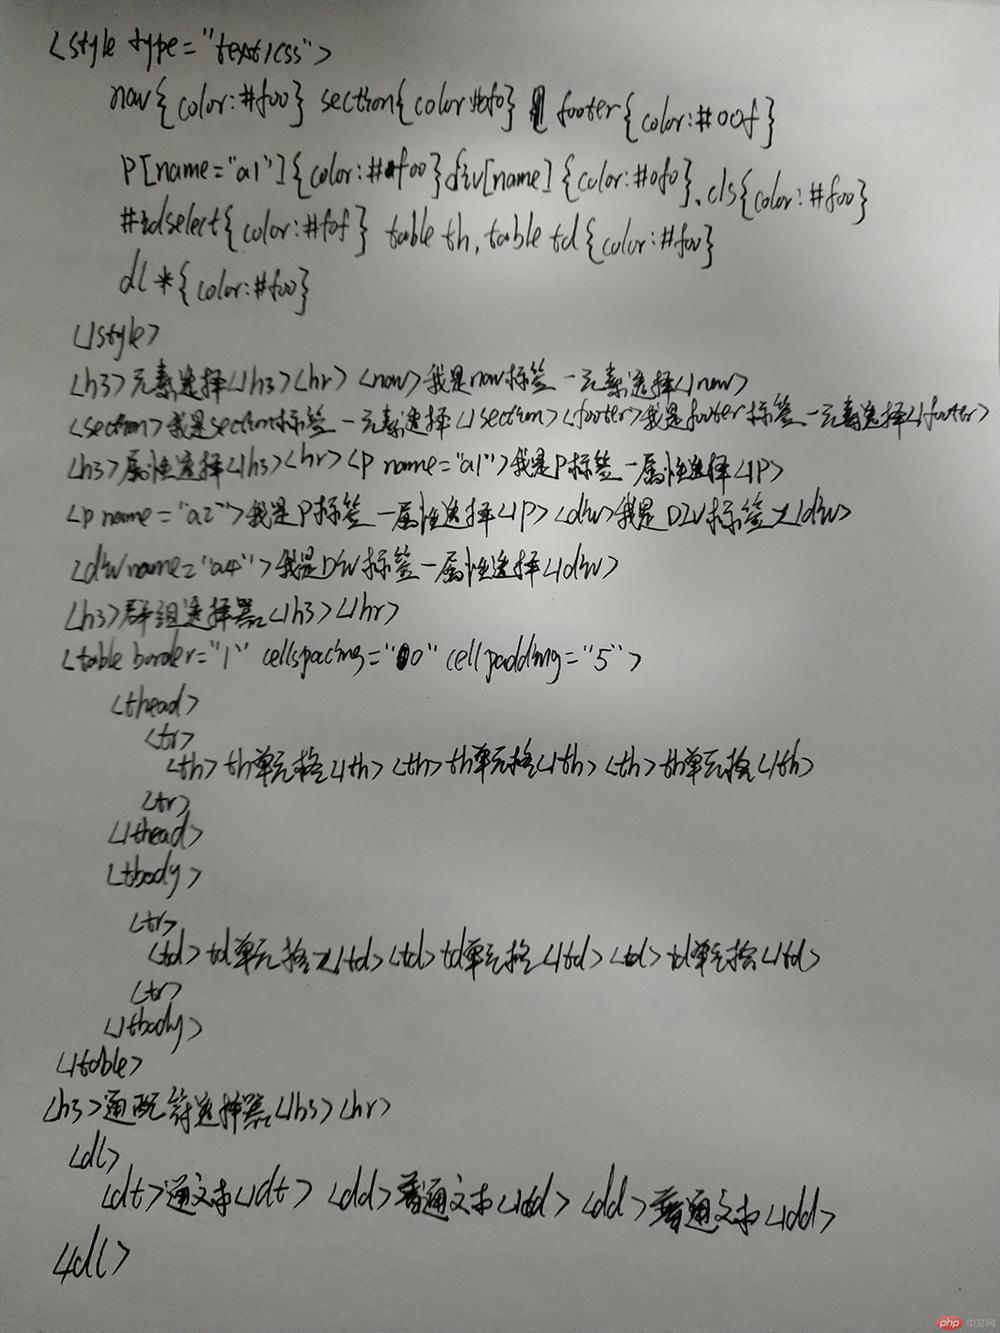 <style type="text/css">
nav{color:#f00} section{color:#0f0} footer{color:#00f}
P[name="a1"]{color:#f00}div[name]{color:#0f0}.cls{color:#f00}
#idselect{color:#f0f} table th,table td{color:#f00}
dl *{color:#f00}
</style>
<h3>元素选择</h3><hr><nav>我是nav标签-元素选择</nav>
<section>我是section标签-元素选择</section><footer>我是footer标签-元素选择</footer>
<h3>属性选择</h3><hr><p name="a1">我是P标签-属性选择</P>
<p name="a2">我是P标签-属性选择</P><div>我是DIV标签</div>
<div name="a4">我是DIV标签-属性选择</div>
<h3>群组选择器</h3></hr>
<table border="1" cellspacing="0" cellpadding="5">
<thead>
<tr>
<th>th单元格</th><th>th单元格</th><th>th单元格</th>
<tr>
</thead>
<tbody>
<tr>
<td>td单元格</td><td>td单元格</td><td>td单元格</td>
<tr>
</tbody>
</table>
<h3>通配符选择器</h3><hr>
<dl>
<dt>通文本</dt> <dd>普通文本</dd> <dd>普通文本</dd>
</dl>
php 中文网